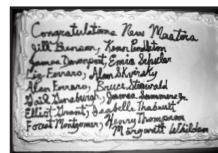 Congratulations New Masters
Jill Benson, Karen Pendleton
James Davenport, Emie Schuler
Liz Ferraro, Alan Skvirsky
Alan Ferraro, Bruce
Gail Ginsburgh, James Sammons Jr.
Elliot Grant, Isabelle Thabault
Forest Montgomery, Henry Thompson
Margarett Whilden